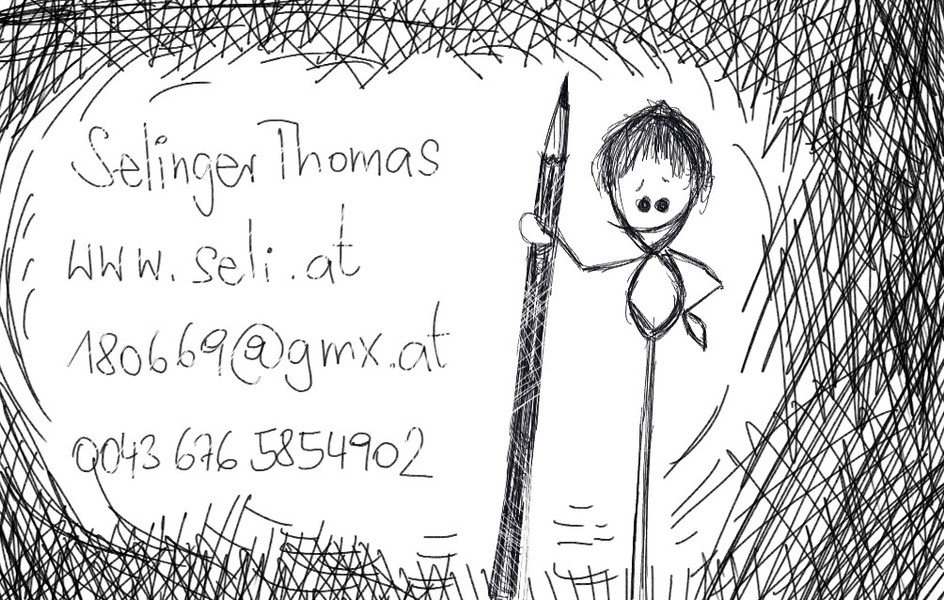 Selinger Thomas
www.seli.at
180669@gmx.at
0043 676 5854902